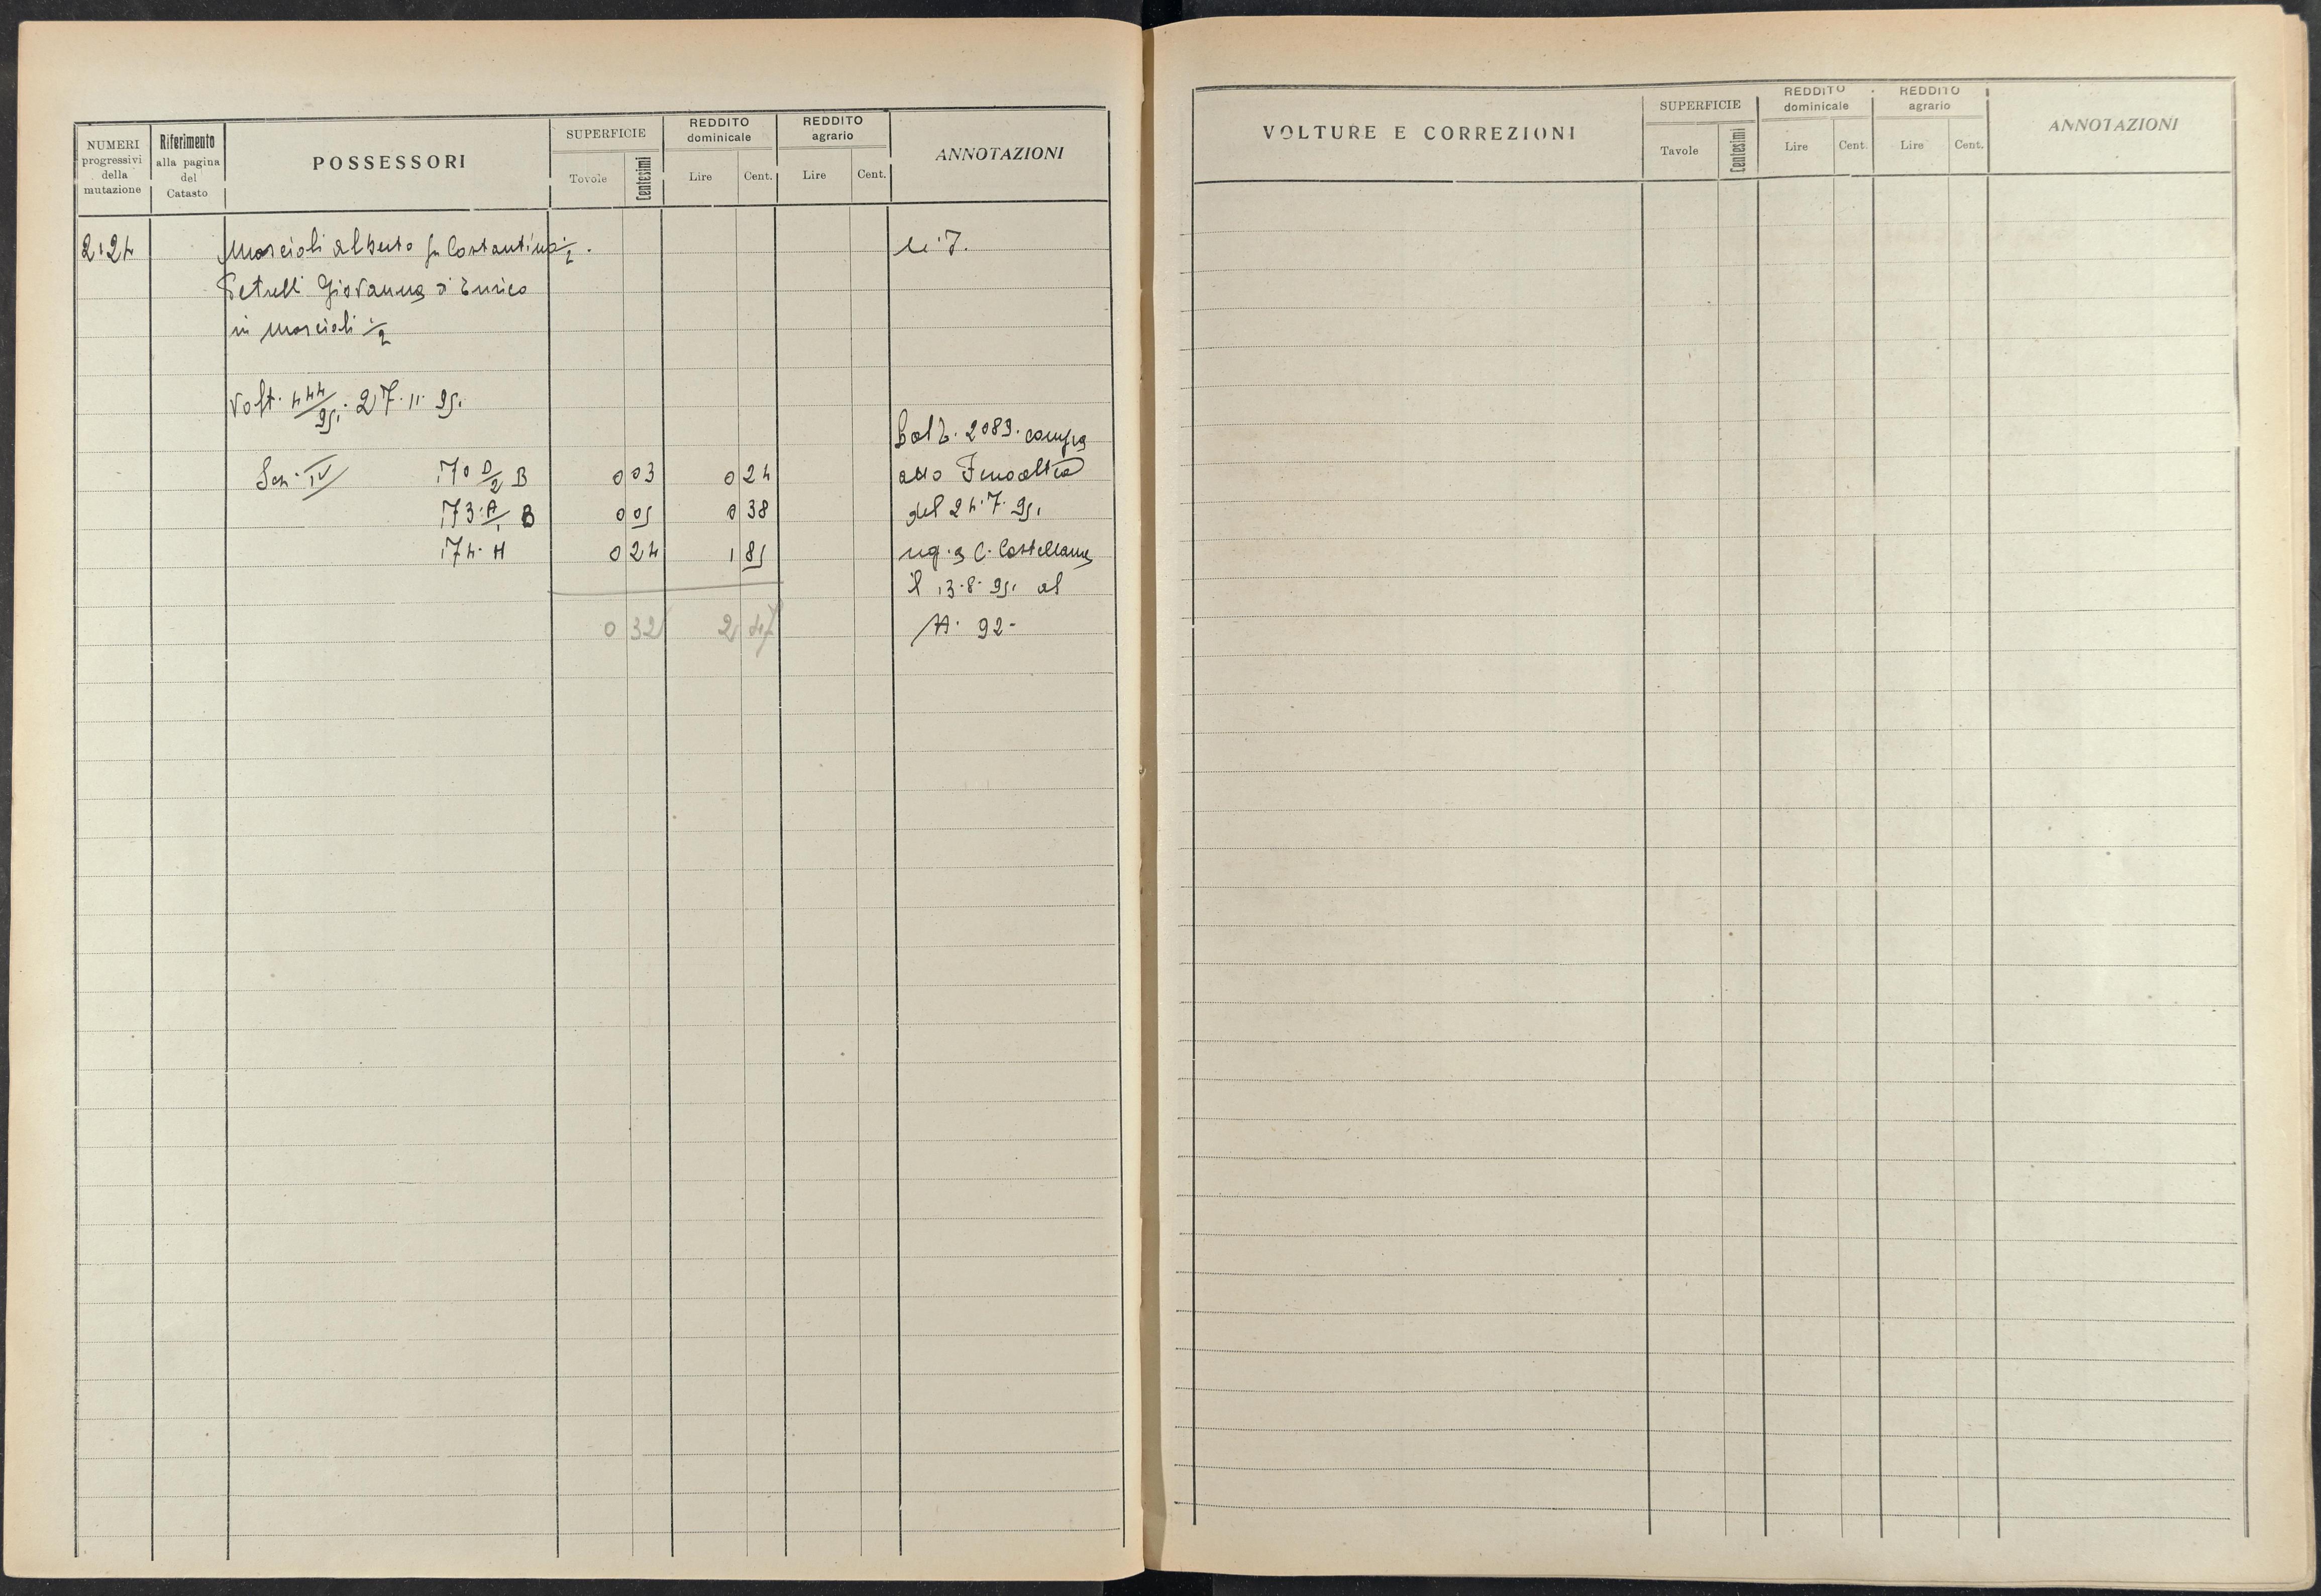 NUMERI progressivi della mutazione
Riferimento alla pagina del Catasto
POSSESSORI
SUPERFICIE
Tavole Centesimi
REDDITO dominicale
Lire Cent.
REDDITO agrario
Lire Cent.
ANNOTAZIONI
2124 Marcioli Alberto fu Costantino 1/2.
Petrelli Giovanna di Enrico
in Marcioli 1/2
Volt. 444/951. 27.11.951
Sez. IV 170 D/2 B 0 03 0 24
173. A/1 B 0 05 0 38
174. H 0 24 1 85
0 32 2 47
2083. compra
atto
del 24.7.951
C. Castellana
il 13.8.951 al
N. 92-
VOLTURE E CORREZIONI
SUPERFICIE
Tavole Centesimi
REDDITO dominicale
Lire Cent.
REDDITO agrario
Lire Cent.
ANNOTAZIONI